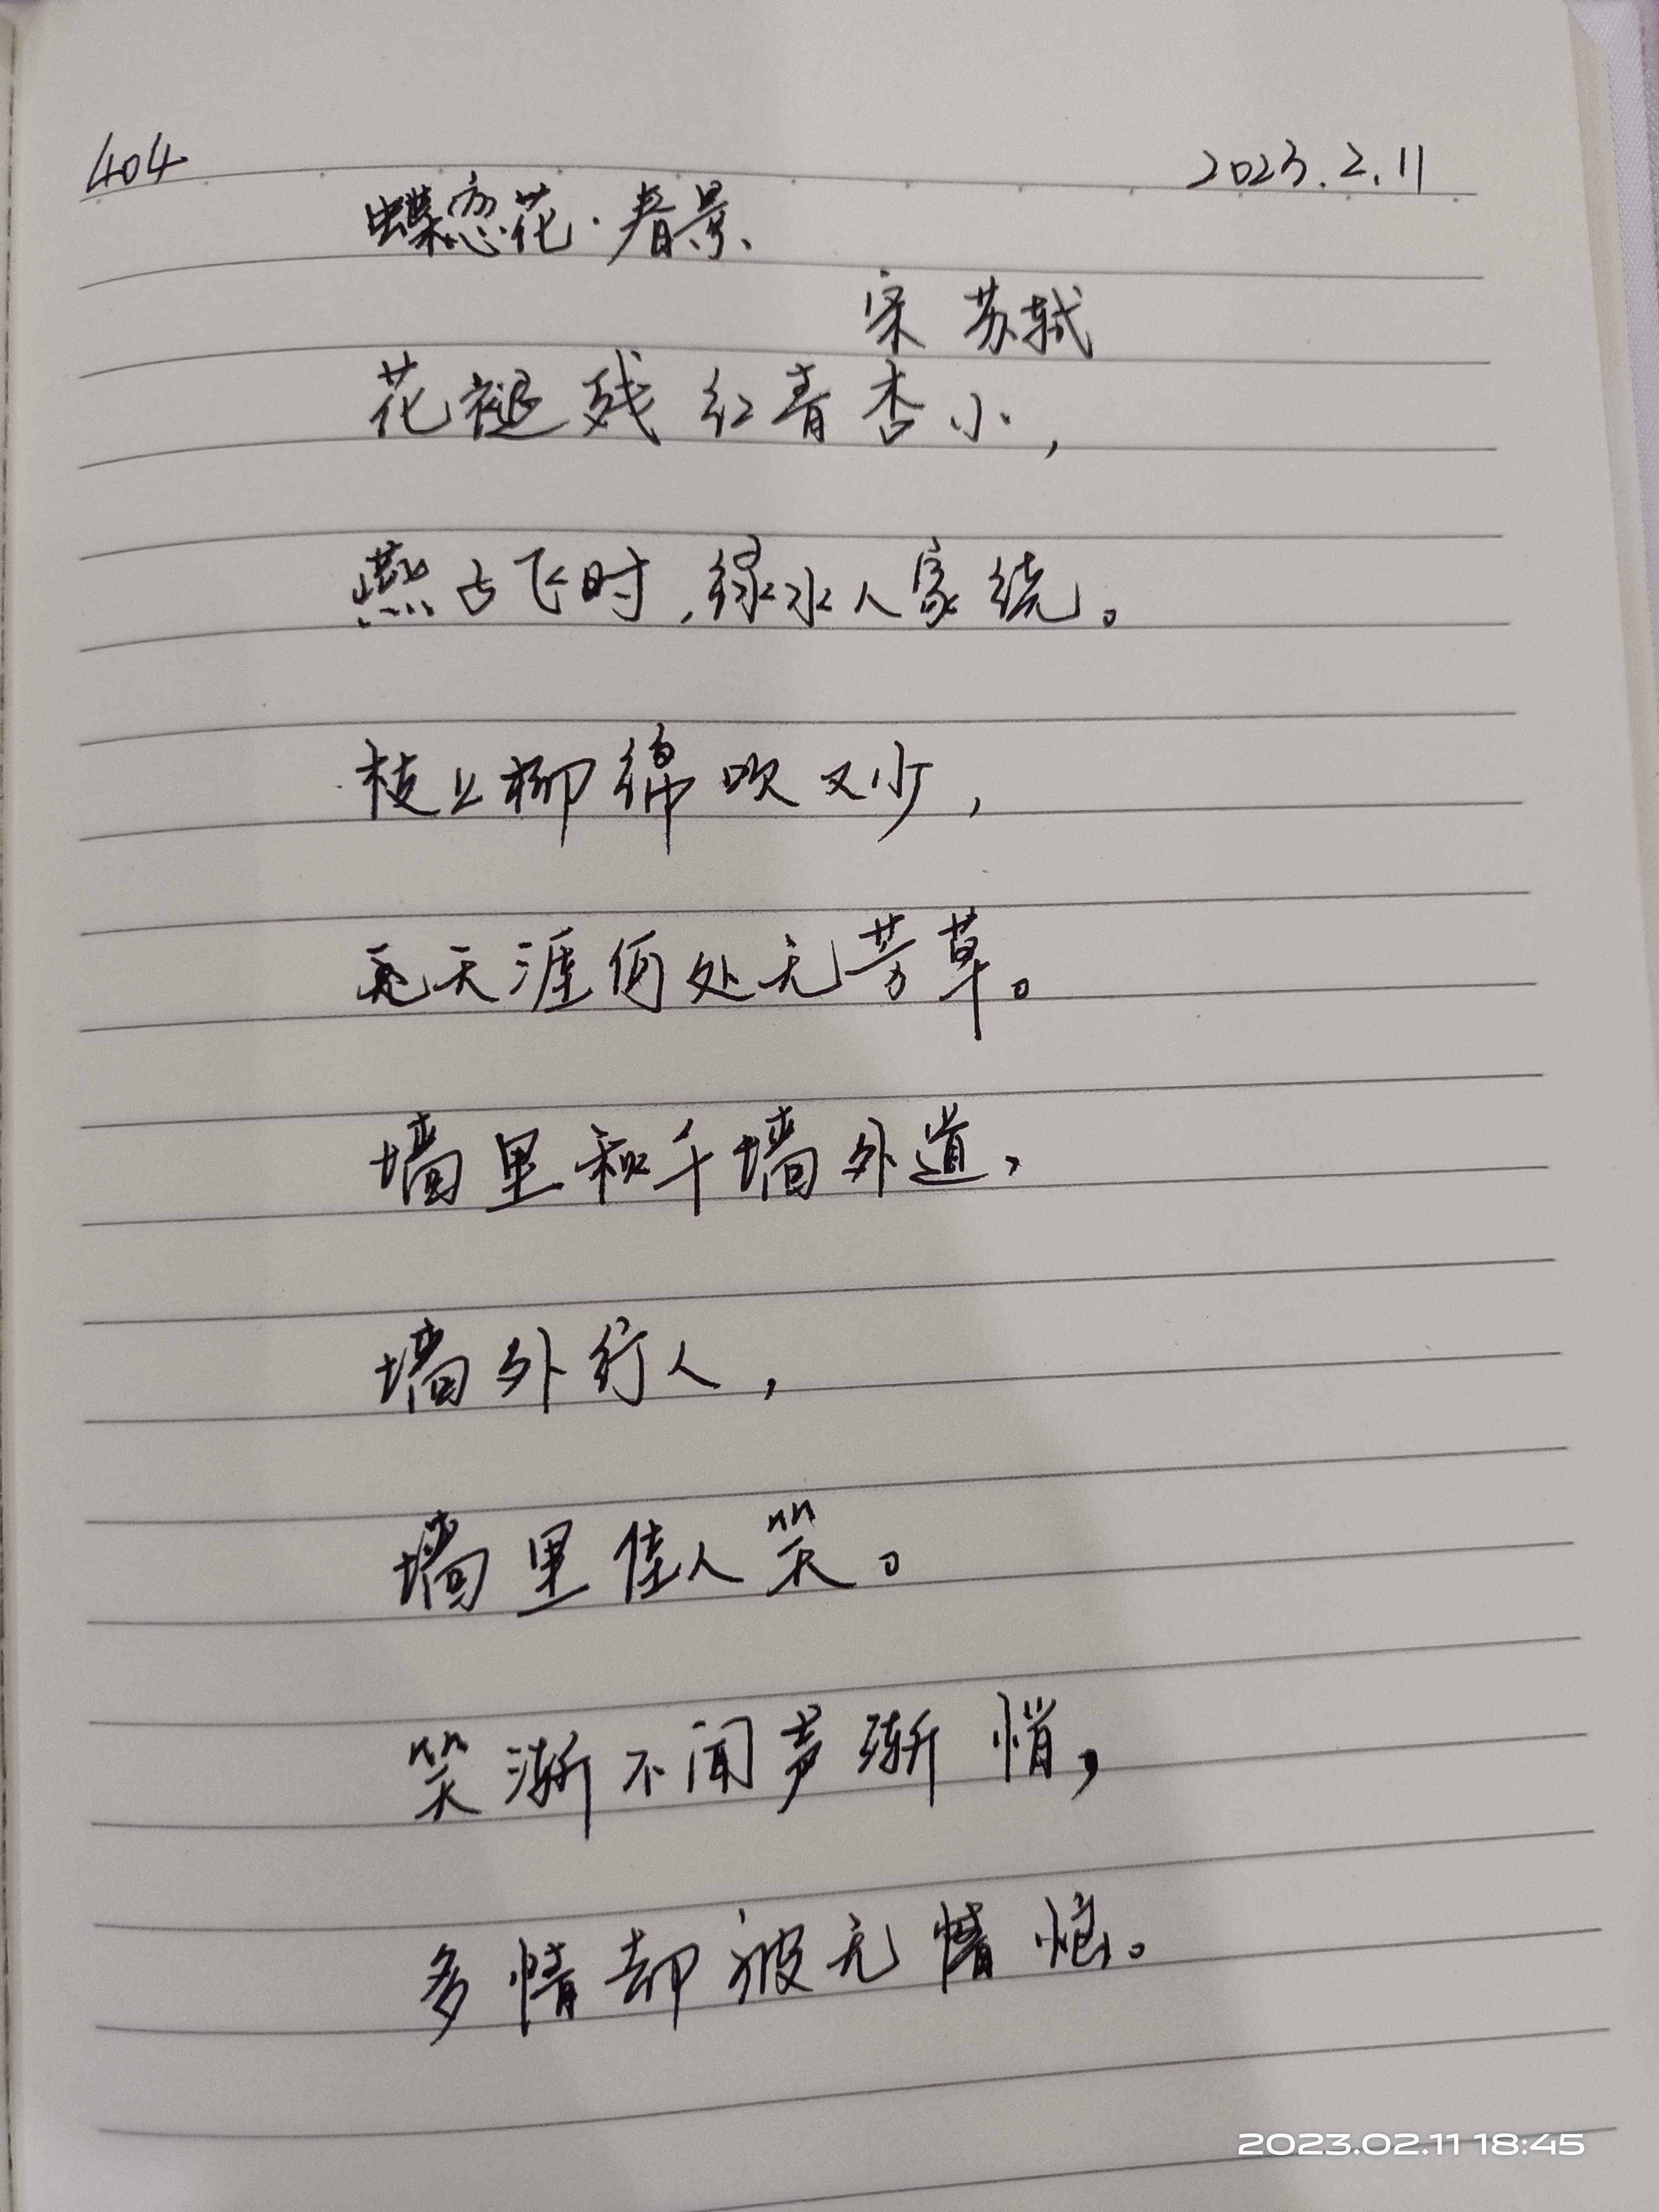 404
2023.2.11
蝶恋花·春景
宋 苏轼
花褪残红青杏小,
燕占飞时,绿水人家绕。
枝上柳绵吹又少,
天涯何处无芳草。
墙里秋千墙外道,
墙外行人,
墙里佳人笑。
笑渐不闻声渐悄,
多情却被无情恼。
2023.02.11 18:45